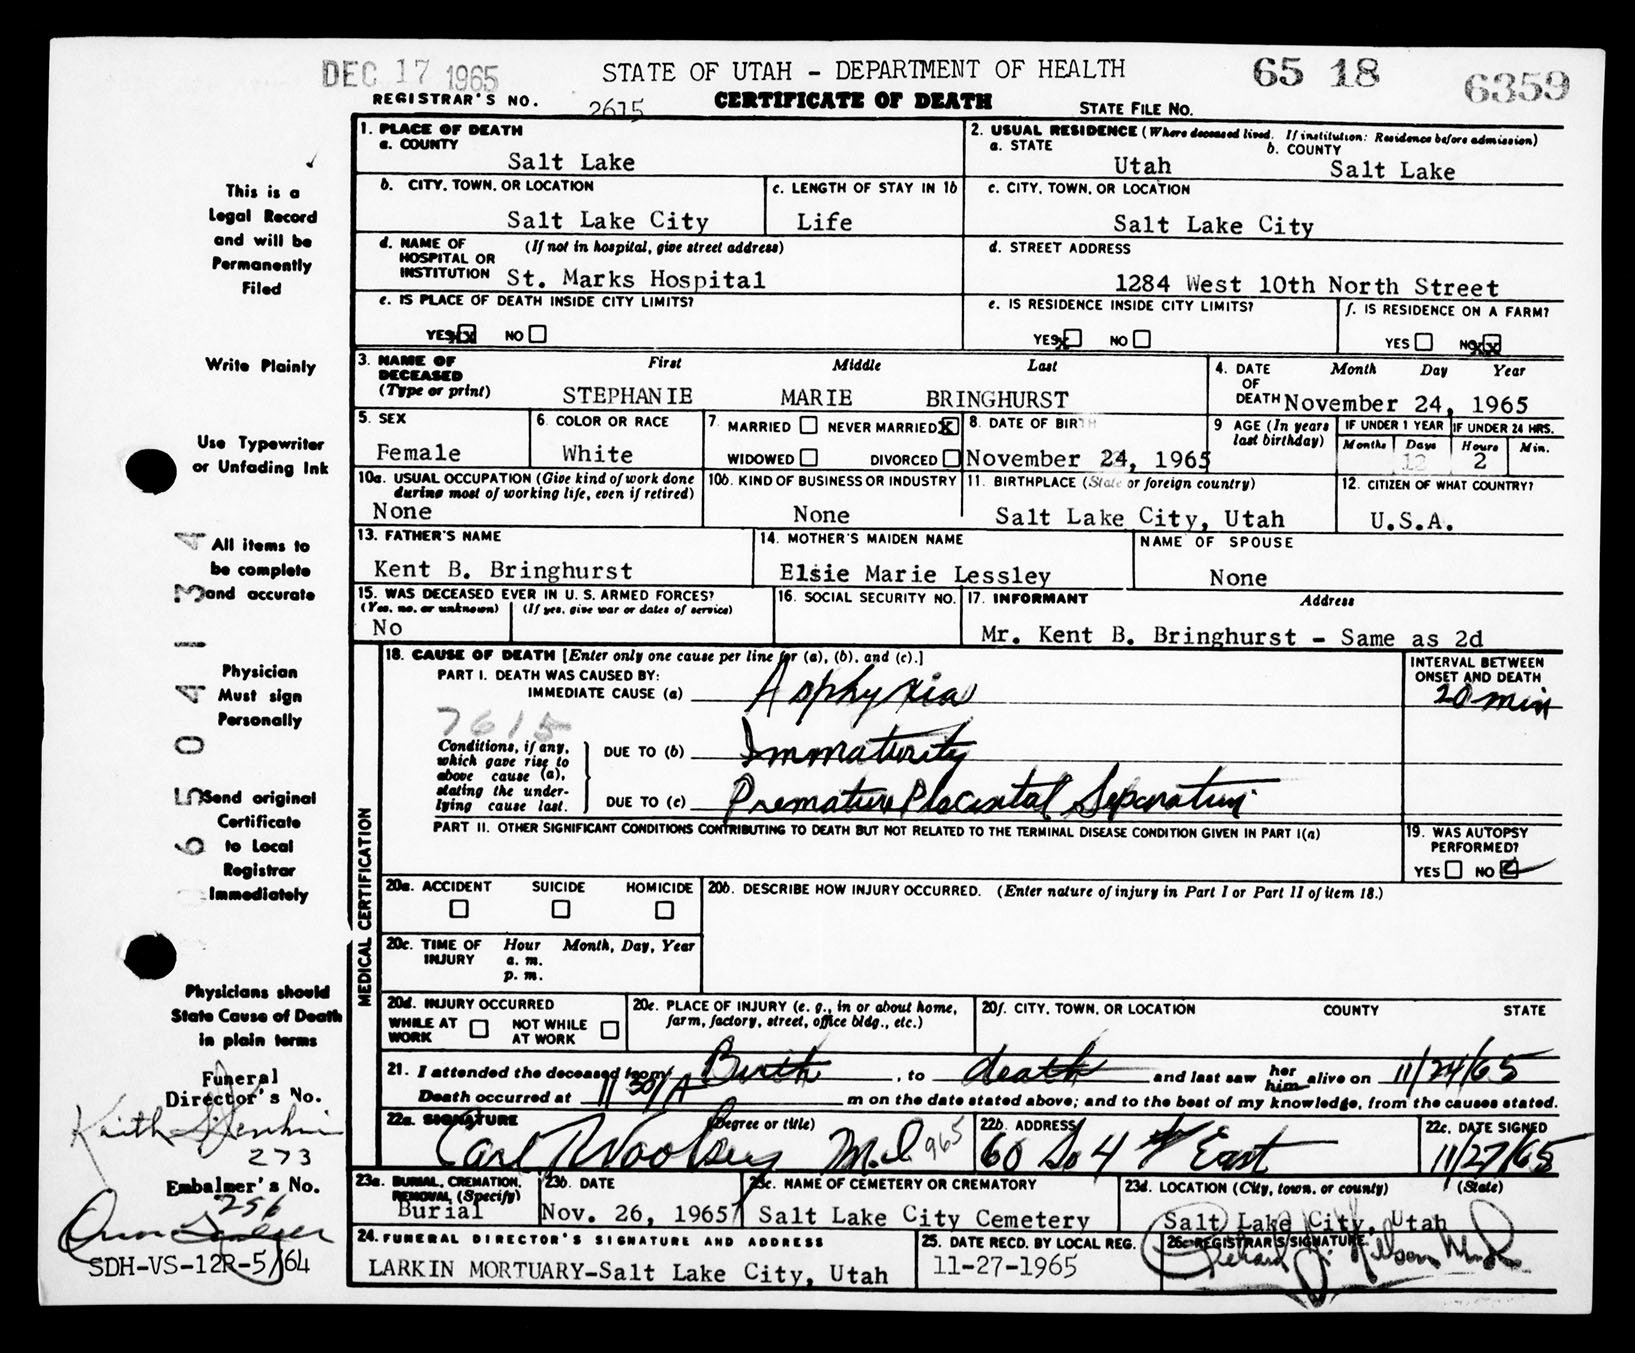 DEC 17 1965
STATE OF UTAH - DEPARTMENT OF HEALTH
65 18
6359
REGISTRAR'S NO. 2615
CERTIFICATE OF DEATH
STATE FILE NO.
This is a
Legal Record
and will be
Permanently
Filed
Write Plainly
Use Typewriter
or Unfading Ink
All items to
be complete
and accurate
Physician
Must sign
Personally
Send original
Certificate
to Local
Registrar
Immediately
Physicians should
State Cause of Death
in plain terms
Funeral
Director's No.
273
Embalmer's No.
256
SDH-VS-12R-5/64
065041134
1. PLACE OF DEATH
a. COUNTY
Salt Lake
2. USUAL RESIDENCE (Where deceased lived. If institution: Residence before admission)
a. STATE
Utah
b. COUNTY
Salt Lake
b. CITY, TOWN, OR LOCATION
Salt Lake City
c. LENGTH OF STAY IN 1b
Life
c. CITY, TOWN, OR LOCATION
Salt Lake City
d. NAME OF HOSPITAL OR INSTITUTION
(If not in hospital, give street address)
St. Marks Hospital
d. STREET ADDRESS
1284 West 10th North Street
e. IS PLACE OF DEATH INSIDE CITY LIMITS?
YES XX NO
e. IS RESIDENCE INSIDE CITY LIMITS?
YES X NO
f. IS RESIDENCE ON A FARM?
YES NO XX
3. NAME OF DECEASED (Type or print)
First Middle Last
STEPHANIE MARIE BRINGHURST
4. DATE OF DEATH
Month Day Year
November 24, 1965
5. SEX
Female
6. COLOR OR RACE
White
7. MARRIED NEVER MARRIED X
WIDOWED DIVORCED
8. DATE OF BIRTH
November 24, 1965
9 AGE (In years last birthday)
IF UNDER 1 YEAR
Months Days
12
IF UNDER 24 HRS.
Hours Min.
2
10a. USUAL OCCUPATION (Give kind of work done during most of working life, even if retired)
None
10b. KIND OF BUSINESS OR INDUSTRY
None
11. BIRTHPLACE (State or foreign country)
Salt Lake City, Utah
12. CITIZEN OF WHAT COUNTRY?
U.S.A.
13. FATHER'S NAME
Kent B. Bringhurst
14. MOTHER'S MAIDEN NAME
Elsie Marie Lessley
NAME OF SPOUSE
None
15. WAS DECEASED EVER IN U.S. ARMED FORCES?
(Yes, no, or unknown) (If yes, give war or dates of service)
No
16. SOCIAL SECURITY NO.
17. INFORMANT Address
Mr. Kent B. Bringhurst - Same as 2d
MEDICAL CERTIFICATION
18. CAUSE OF DEATH [Enter only one cause per line for (a), (b), and (c).]
INTERVAL BETWEEN ONSET AND DEATH
PART I. DEATH WAS CAUSED BY:
IMMEDIATE CAUSE (a) Asphyxia 20 min
7615
Conditions, if any, which gave rise to above cause (a), stating the underlying cause last.
DUE TO (b) Immaturity
DUE TO (c) Premature Placental Separation
PART II. OTHER SIGNIFICANT CONDITIONS CONTRIBUTING TO DEATH BUT NOT RELATED TO THE TERMINAL DISEASE CONDITION GIVEN IN PART I(a)
19. WAS AUTOPSY PERFORMED?
YES NO
20a. ACCIDENT SUICIDE HOMICIDE
20b. DESCRIBE HOW INJURY OCCURRED. (Enter nature of injury in Part I or Part II of item 18.)
20c. TIME OF INJURY
Hour Month, Day, Year
a. m.
p. m.
20d. INJURY OCCURRED
WHILE AT WORK NOT WHILE AT WORK
20e. PLACE OF INJURY (e. g., in or about home, farm, factory, street, office bldg., etc.)
20f. CITY, TOWN, OR LOCATION COUNTY STATE
21. I attended the deceased from Birth , to death and last saw her him alive on 11/24/65
Death occurred at 11 30/A m on the date stated above; and to the best of my knowledge, from the causes stated.
22a. SIGNATURE (Degree or title)
Carl Woolsey M.D. 965
22b. ADDRESS
60 So 4 East
22c. DATE SIGNED
11/27/65
23a. BURIAL, CREMATION, REMOVAL (Specify)
Burial
23b. DATE
Nov. 26, 1965
23c. NAME OF CEMETERY OR CREMATORY
Salt Lake City Cemetery
23d. LOCATION (City, town, or county) (State)
Salt Lake City, Utah
24. FUNERAL DIRECTOR'S SIGNATURE AND ADDRESS
LARKIN MORTUARY-Salt Lake City, Utah
25. DATE RECD. BY LOCAL REG.
11-27-1965
26. REGISTRAR'S SIGNATURE